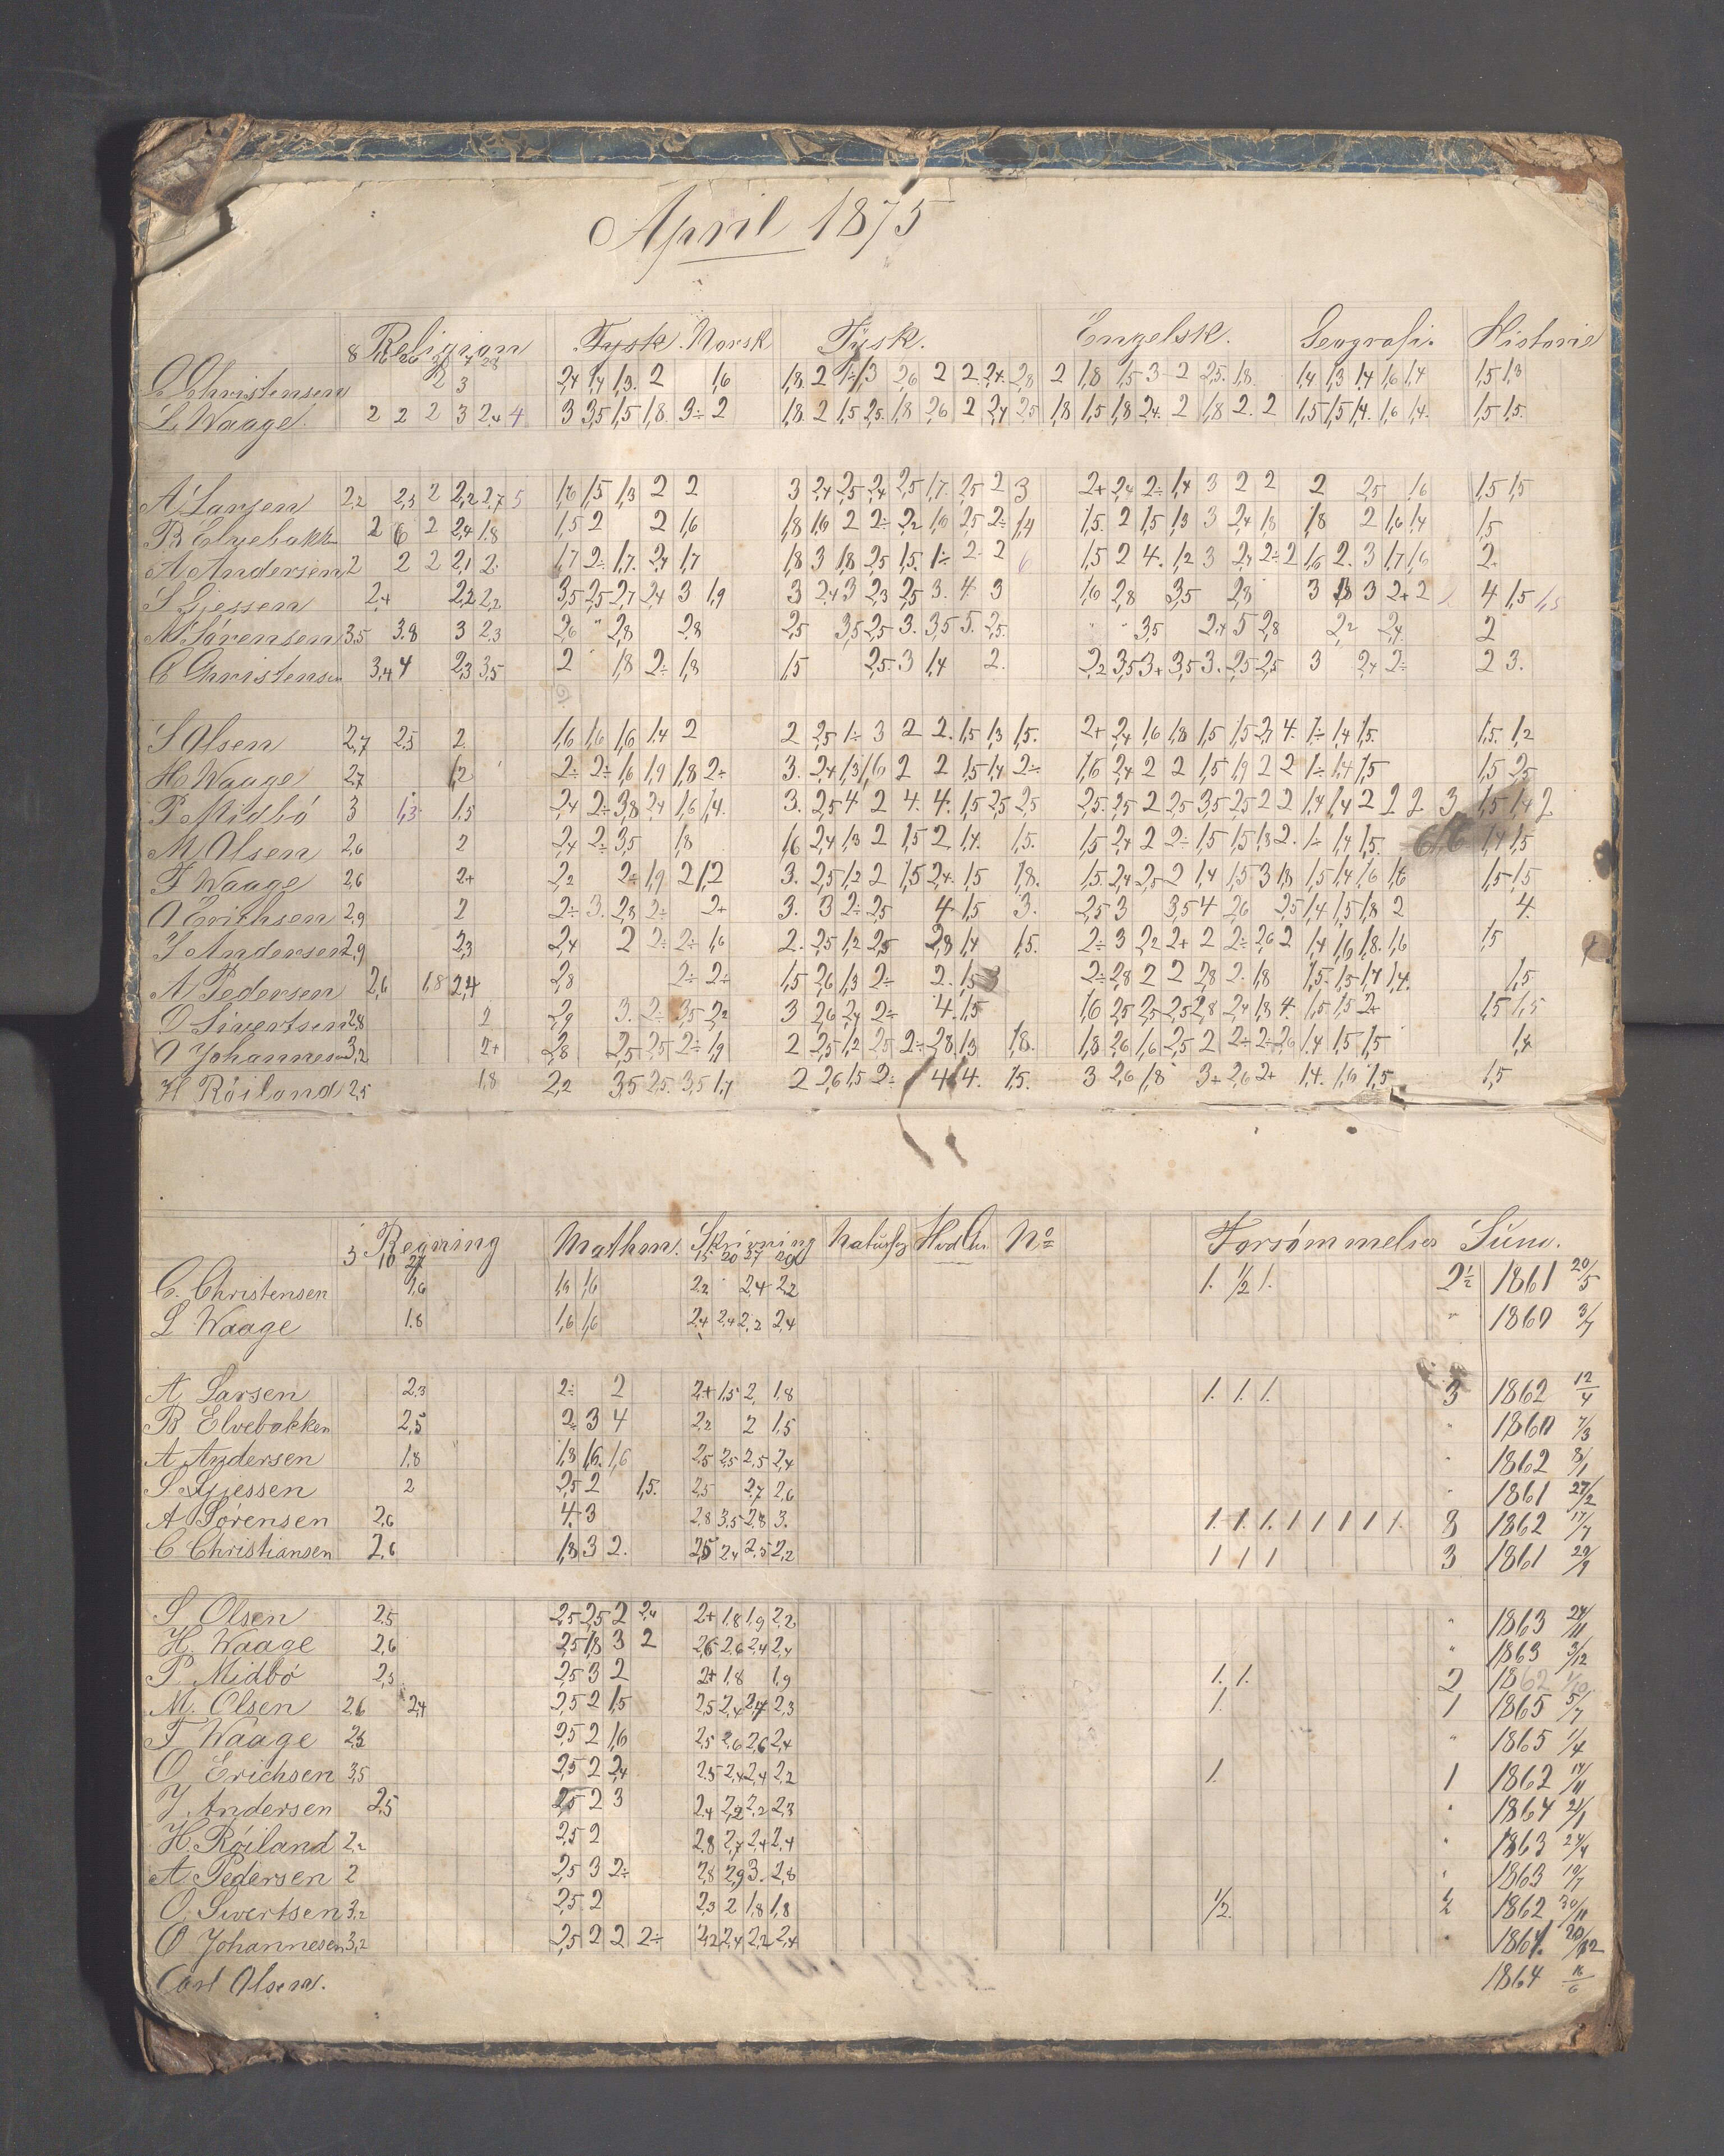 April 1875
Religion Tysk. Norsk Tysk. Engelsk. Geografi. Historie
C Christensen 2 3 2,4 1,4 1,3. 2 1,6 1,8. 2 1÷ 1,3 2,6 2 2. 2,4. 2,8 2 1,8 1,5 3 2 2,5. 1,8. 1,4 1,3 1,4 1,6 1,4 1,5 1,3
L Waage. 2 2 2 3 2,4 4 3 3,5 1,5 1,8. 3÷ 2 1,8 2 1,5 2,5. 1,8 2,6 2 2,4 2,5 1,8 1,5 1,8 2,4. 2 1,8 2. 2 1,5 1,5 1,4. 1,6 1,4. 1,5 1,5.
A Larsen 2,2 2,3 2 2,2 2,7 5 1,6 1,5 1,3 2 2 3 2,4 2,5 2,4 2,5 1,7. 2,5 2 3 2+ 2,4 2÷ 1,4 3 2 2 2 2,5 1,6 1,5 1,5
B Elvebakken 2 6 2 2,4 1,8 1,5 2 2 1,6 1,8 1,6 2 2÷ 2,2 1,6 2,5 2÷ 1,4 1,5. 2 1,5 1,3 3 2,4 1,8 1,8 2 1,6 1,4 1,5
A Andersen 2 2 2 2,1 2. 1,7 2÷ 1,7. 2,4 1,7 1,8 3 1,8 2,5 1,5. 1÷ 2. 2 6 1,5 2 4. 1,2 3 2,4 2÷ 2 1,6 2. 3 1,7 1,6 2.
S Gjessen 2,4 2,2 2,2 3,5 2,5 2,7 2,4 3 1,9 3 2,4 3 2,3 2,5 3. 4. 3 1,6 2,8 3,5 2,3 3 1,8 3 2+ 2 2 4 1,5 1,5
A Sørensen 3,5 3,8 3 2,3 2,6 " 2,8 2,8 2,5 3,5 2,5 3. 3,5 5. 2,5. " " 3,5 2,4 5 2,8 2,2 2,4. 2
C Christensen 3,4 4 2,3 3,5 2 1,8 2÷ 1,8 1,5 2,5 3 1,4 2. 2,2 3,5 3+ 3,5 3. 2,5 2,5 3 2,4 2÷ 2 3.
S Olsen 2,7 2,5 2 1,6 1,6 1,6 1,4 2 2 2,5 1÷ 3 2 2. 1,5 1,3 1,5. 2+ 2,4 1,6 1,8 1,5 1,5 2,4 4. 1÷ 1,4 1,5. 1,5. 1,2
H Waage 2,7 1,2 2÷ 2÷ 1,6 1,9 1,8 2÷ 3. 2,4 1,3 1,6 2 2 1,5 1,4 2÷ 1,6 2,4 2 2 1,5 1,9 2 2 1÷ 1,4 1,5 1,5 2,5
P Midbö 3 1,3 1,5 2,4 2÷ 3,8 2,4 1,6 1,4. 3. 2,5 4 2 4. 4. 1,5 2,5 2,5 2,5. 2,5 2 2,5 3,5 2,5 2 2 1,4 1,4 2 2 2 3 1,5 1,4 2
M Olsen 2,6 2 2,4 2÷ 3,5 1,8 1,6 2,4 1,3 2 1,5 2 1,4. 1,5. 1,5 2,4 2 2÷ 1,5 1,5 1,8 2. 1÷ 1,4 1,5. 1,4 1,5
F Waage 2,6 2+ 2,2 2÷ 1,9 2 1,2 3. 2,5 1,2 2 1,5 2,4. 1,5 1,8. 1,5. 2,4 2,5 2 1,4 1,5 3 1,8 1,5 1,4 1,6 1,6 1,5 1,5
O Erichsen 2,9 2 2÷ 3. 2,8 2÷ 2+ 3. 3 2÷ 2,5 4 1,5 3. 2,5 3 3,5 4 2,6 2,5 1,4 1,5 1,8 2 4.
J Andersen 2,9 2,3 2,4 2 2÷ 2÷ 1,6 2. 2,5 1,2 2,5 2,8 1,4 1,5. 2÷ 3 2,2 2+ 2 2÷ 2,6 2 1,4 1,6 1,8. 1,6 1,5
A Pedersen 2,6 1,8 2,4 2,8 2÷ 2÷ 1,5 2,6 1,3 2÷ 2. 1,5 3 2÷ 2,8 2 2 2,8 2. 1,8 1,5. 1,5 1,7 1,4. 1,5
O Sivertsen 2,8 2 2,9 3. 2÷ 3,5 2,2 3 2,6 2,4 2÷ 4. 1,5 1,6 2,5 2,5 2,5 2,8 2,4 1,8 4. 1,5 1,5 2+ 1,5 1,5
O Johannesen 3,2 2+ 2,8 2,5 2,5 2÷ 1,9 2 2,5 1,2 2,5 2÷ 2,8 1,3 1,8. 1,8 2,6 1,6 2,5 2 2÷ 2÷ 2,6 1,4 1,5 1,5 1,4
H Röiland 2,5 1,8 2,2 3,5 2,5. 3,5 1,7 2 2,6 1,5 2÷ 4 4. 1,5. 3 2,6 1,8 3+ 2,6 2+ 1,4. 1,6 1,5 1,5
3 Regning Mathm. Skrivning Naturfag No Forsømmelser Sum.
10 27 15 20 27 29
C. Christensen 1,6 1,6 1,6 2,2 2,4 2,2 1. 1/2 1. 2 1/2 1861 20/5
L Waage 1,8 1,6 1,6 2,4 2,4 2,2 2,4 " 1860 3/7
A Larsen 2,3 2÷ 2 2+ 1,5 2 1,8 1. 1. 1. 3 1862 12/4
B Elvebakken 2,5 2÷ 3 4 2,2 2 1,5 " 1860 7/3
A Andersen 1,8 1,8 1,6. 1,6 2,5 2,5 2,5 2,4 " 1862 8/1
S. Gjessen 2 2,5 2 1,5. 2,5 2,7 2,6 " 1861 27/2
A Sørensen 2,6 4. 3 2,8 3,5 2,8 3. 1. 1. 1. 1 1 1 1 1. 8 1862 17/7
C Christiansen 2,6 1,8 3 2. 2,5 2,4 2,5 2,2 1 1 1 3 1861 29/9
S Olsen 2,5 2,5 2,5 2 2,4 2+ 1,8 1,9 2,2 " 1863 24/11
H. Waage 2,6 2,5 1,8 3 2 2,6 2,6 2,4 2,4 " 1863 3/12
P. Midbö 2,5 2,5 3 2 2+ 1,8 1,9 1. 1. 2 1862 1/10
M. Olsen 2,6 2,4 2,5 2 1,5 2,5 2,4 2,4 2,3 1. 1 1865 5/7
F Waage 2,5 2,5 2 1,6 2,5 2,6 2,6 2,4 " 1865 1/4
O Erichsen 3,5 2,5 2 2,4 2,5 2,4 2,4 2,2 1. 1 1862 14/11
J Andersen 2,5 2,5 2 3 2,4 2,2 2,2 2,3 " 1864 21/1
H. Röiland 2,2 2,5 2 2,8 2,7 2,4 2,4 " 1863 24/4
A Pedersen 2 2,5 3 2÷ 2,8 2,9 3. 2,8 " 1863 19/7
O. Sivertsen 3,2 2,5 2 2,3 2 1,8 1,8 1/2. 1/2 1862 30/11
O Johannesen 3,2 2,5 2 2 2÷ 2,2 2,4 2,2 2,4 " 1861. 20/12
Carl Olsen. 1864 16/6